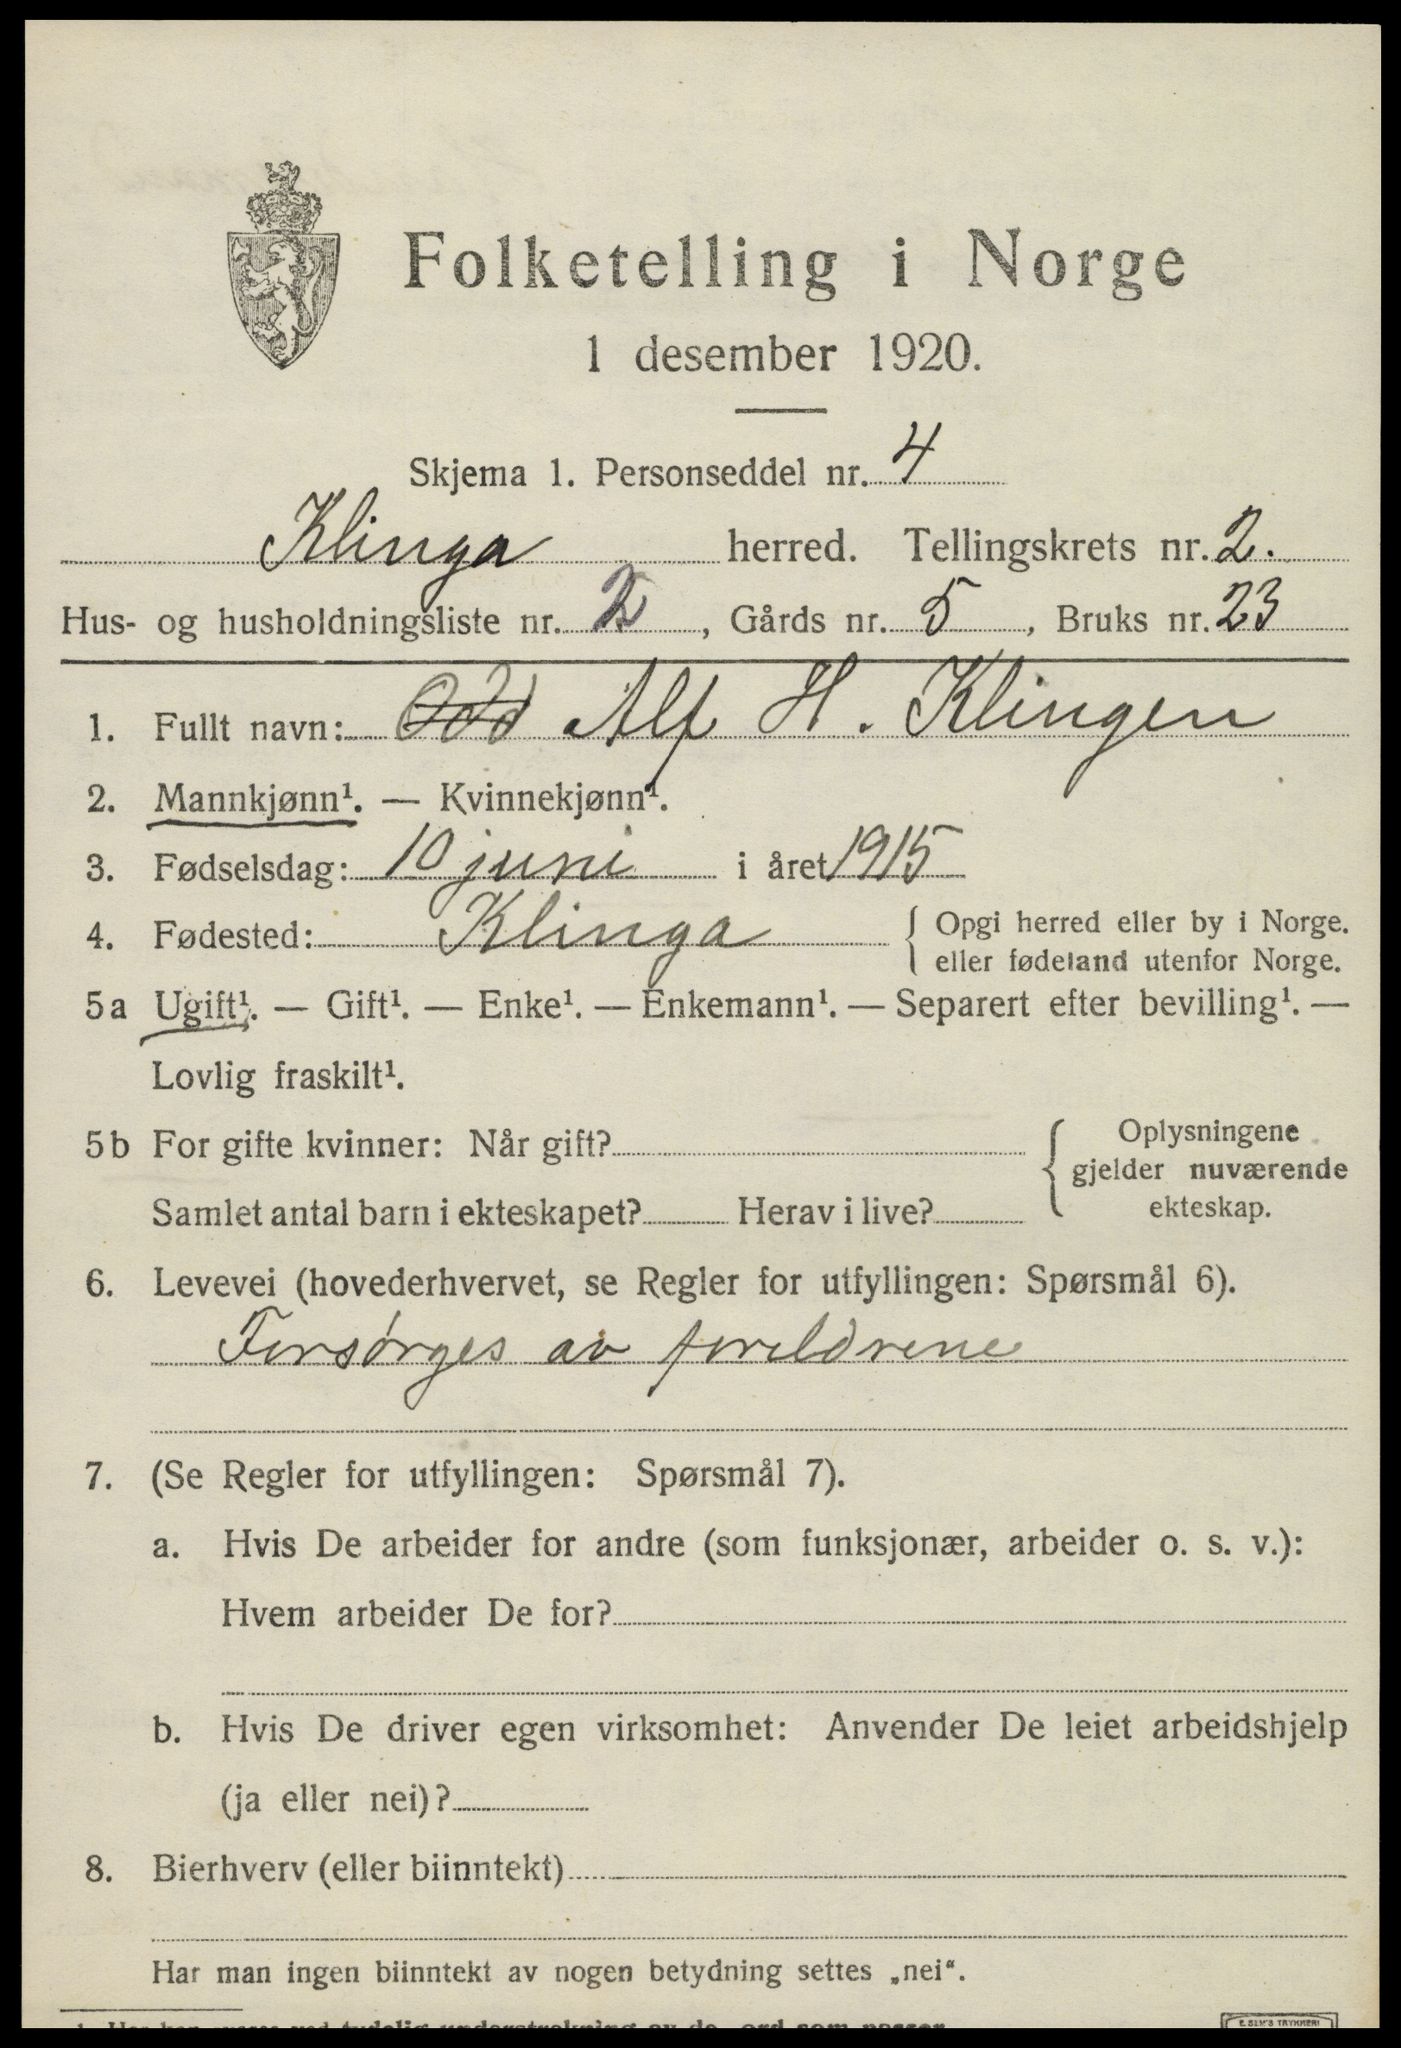 Folketelling i Norge
1 desember 1920.
Skjema 1. Personseddel nr. 4
Klinga herred. Tellingskrets nr. 2.
Hus- og husholdningsliste nr. 2, Gårds nr. 5, Bruks nr. 23
1. Fullt navn: Odd Alf H. Klingen
2. Mannkjønn¹. — Kvinnekjønn¹.
3. Fødselsdag: 10 juni i året 1915
4. Fødested: Klinga { Opgi herred eller by i Norge.
eller fødeland utenfor Norge.
5a Ugift¹. — Gift¹. — Enke¹. — Enkemann¹. — Separert efter bevilling¹. —
Lovlig fraskilt¹.
5b For gifte kvinner: Når gift? { Oplysningene
gjelder nuværende
ekteskap.
Samlet antal barn i ekteskapet? Herav i live?
6. Levevei (hovederhvervet, se Regler for utfyllingen: Spørsmål 6).
Forsørges av foreldrene
7. (Se Regler for utfyllingen: Spørsmål 7).
a. Hvis De arbeider for andre (som funksjonær, arbeider o. s. v.):
Hvem arbeider De for?
b. Hvis De driver egen virksomhet: Anvender De leiet arbeidshjelp
(ja eller nei)?
8. Bierhverv (eller biinntekt)
Har man ingen biinntekt av nogen betydning settes „nei“.
1 Her kan svares ved tydelig understrekning av de ord som passer.
E. SEM'S TRYKKERI